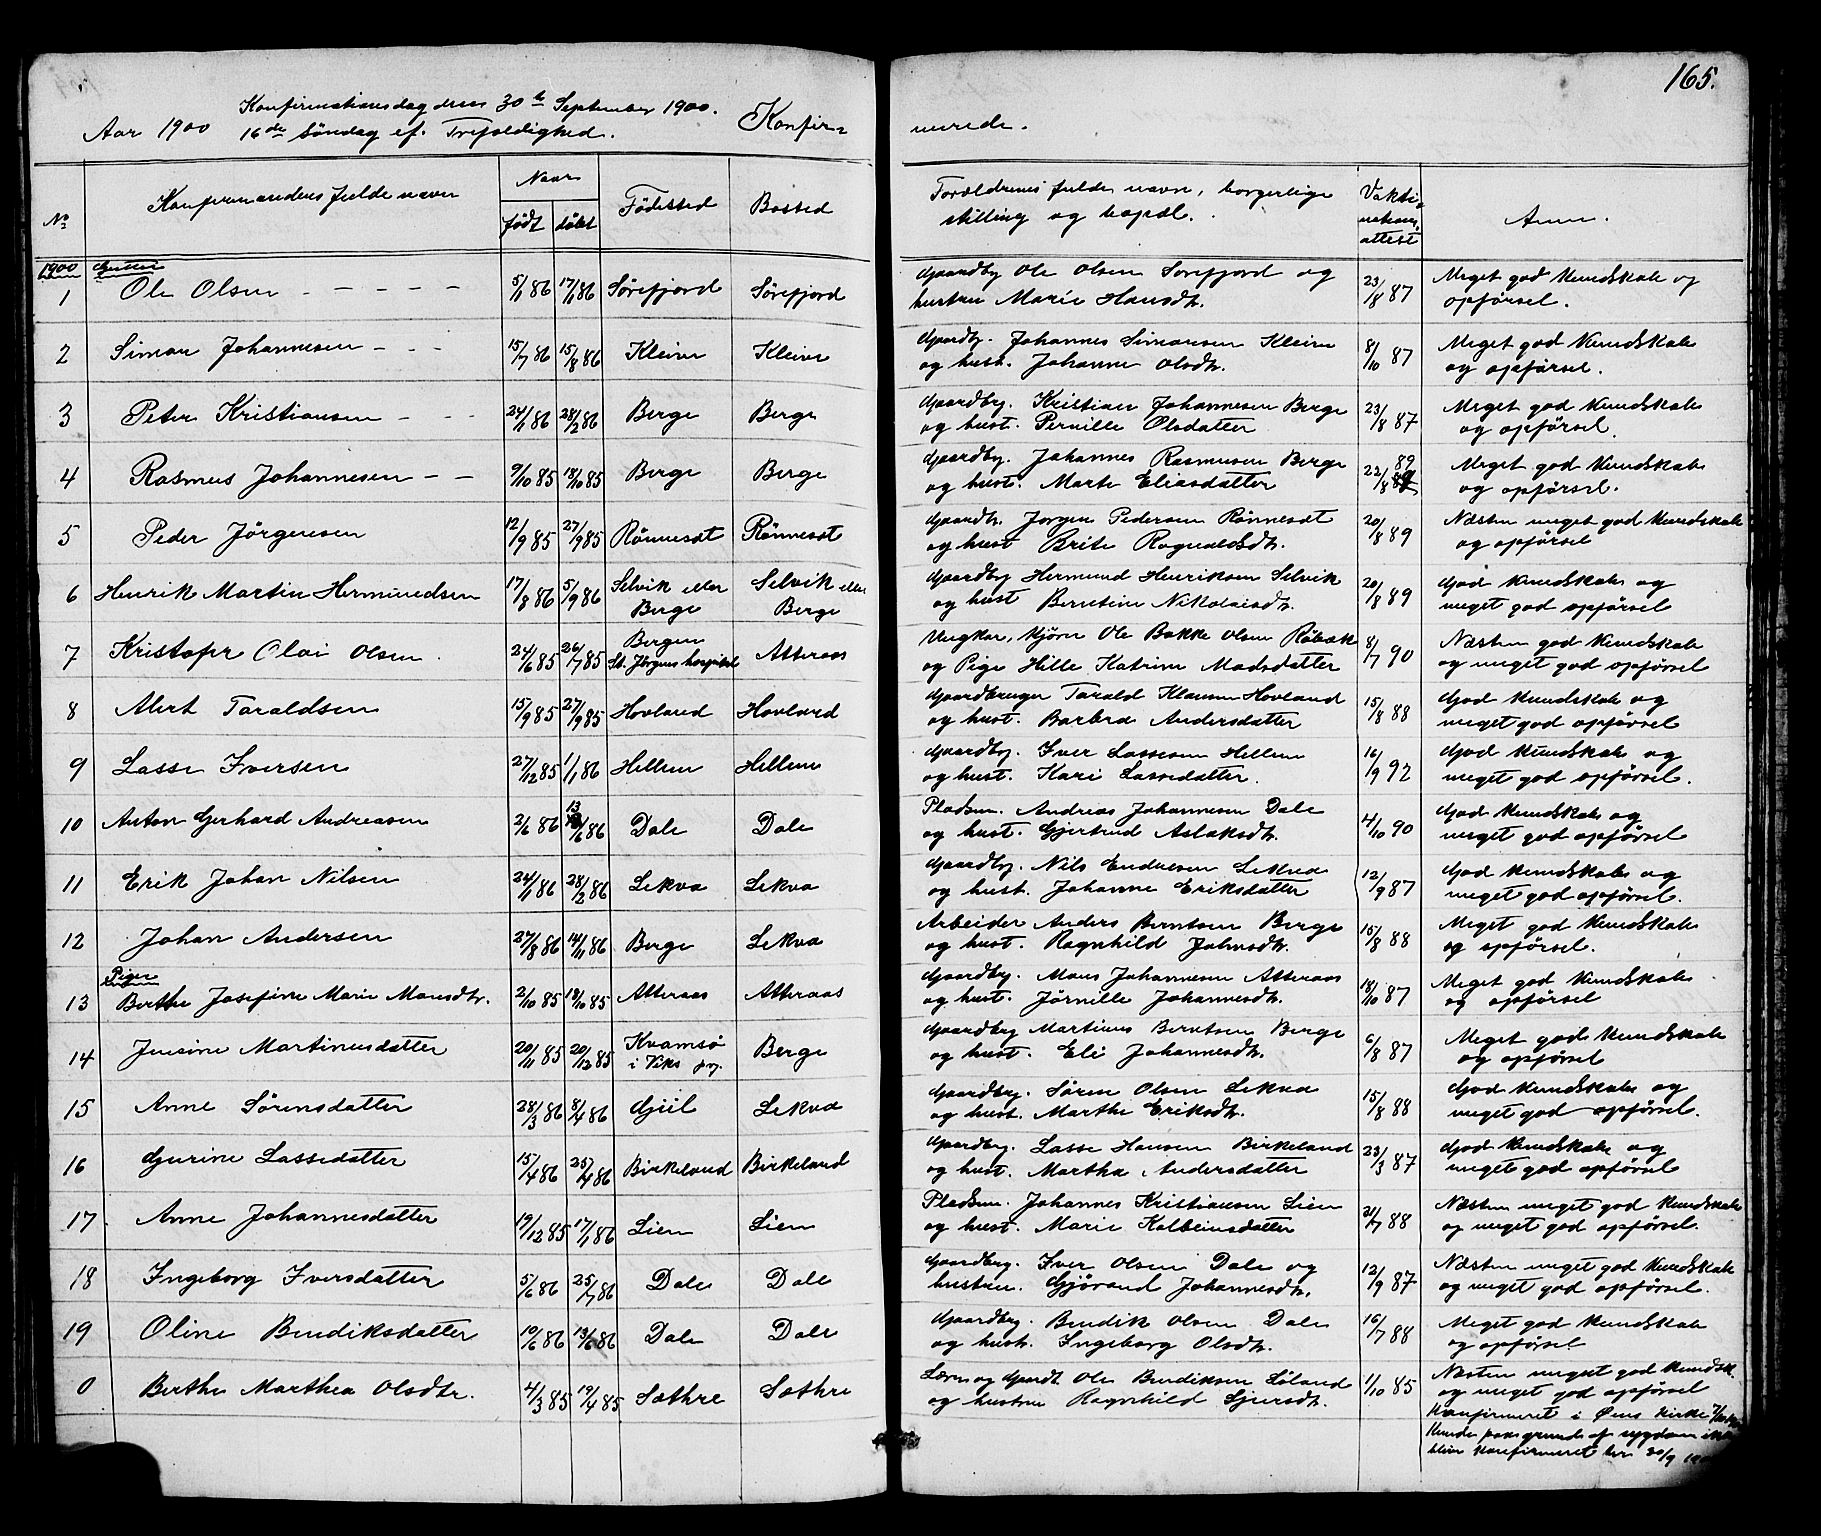 165.
Konfirmationsdag den 30te September 1900.
Aar 1900 16de Søndag ef. Trefoldighed. Konfir= merede.
No Konfirmandens fulde navn Naar født døbt Fødested Bosted Forældrenes fulde navn, borgerlige stilling og bopæl. Vaktinationsattest Anm.
1900 Gutter
1 Ole Olsen 5/1 86 17/1 86 Sørefjord Sørefjord Gaardbr Ole Olsen Sørefjord og 23/8 87 Meget god kundskab og
hustru Marie Hansdt. opførsel.
2 Simon Johannesen 15/7 86 15/8 86 Kleive Kleive Gaardbr. Johannes Simonsen Kleive 8/10 87 Meget god kundskab
og hust. Johanne Olsdt. og opførsel.
3 Peter Kristiansen 24/1 86 28/2 86 Berge Berge Gaardbr. Kristian Johannesen Berge 23/8 87 Meget god kundskab
og hust. Pernille Olsdatter og opførsel.
4 Rasmus Johannesen 9/10 85 18/10 85 Berge Berge Gaardbr. Johannes Rasmusen Berge 22/8 89 Meget god kundskab
og hust. Marte Eliasdatter og opførsel.
5 Peder Jørgensen 12/9 85 27/9 85 Rønneset Rønneset Gaardb. Jørgen Pedersen Rønneset 20/8 89 Næsten meget god kundskab
og hust Brite Rognaldsdt. og opførsel
6 Henrik Martin Hermundsen 17/8 86 5/9 86 Selvik eller Selvik eller Gaardbr Hermund Henriksen Selvik 20/8 89 God kundskab og
Berge Berge og hust Berntine Nikolaisdt. meget god opførsel
7 Kristofer Olai Olsen 24/6 85 26/7 85 Bergen Atteraas Ungkar, Ole Bakke Olsen Røbæk 8/7 90 Næsten god kundskab
St. Jørgens hospital og Pige Hille Katrine Madsdatter og meget god opførsel
8 Alert Taraldsen 15/9 85 27/9 85 Hovland Hovland Gaardbruger Tarald Klausen Hovland 15/8 88 God kundskab og
og hust. Barbra Andersdatter meget god opførsel
9 Lasse Iversen 27/12 85 1/1 86 Hellem Hellem Gaardbr. Iver Lassesen Hellem 16/9 92 God kundskab og
og hust. Kari Lassedatter. meget god opførsel.
10 Anton Gerhard Andreasen 2/6 86 13/6 86 Dale Dale Pladsm. Andreas Johannesen Dale 4/10 90 God kundskab og
og hust. Gjertrud Aslaksdt. meget god opførsel
11 Erik Johan Nilsen 24/1 86 28/2 86 Lekva Lekva Gaardbr. Nils Endresen Lekva 12/9 87 God kundskab og
og hust. Johanne Eriksdatter meget god opførsel.
12 Johan Andersen 27/8 86 14/11 86 Berge Lekva Arbeider Anders Berntsen Berge 15/8 88 Meget god kundskab
og hust. Ragnhild Johnsdt. og opførsel.
Piger
13 Berthe Josefine Marie Monsdtr. 2/10 85 18/10 85 Atteraas Atteraas Gaardbr. Mons Johannesen Atteraas 18/10 87 Meget god kundskab
og hust. Jørnille Johannesdt. og opførsel
14 Jensine Martinusdatter 20/11 85 20/12 85 Kvamsø Berge Gaardbr Martinus Berntsen Berge 6/8 87 Meget god kundskab
i Viks prj. og hust. Eli Johannesdt. og opførsel
15 Anne Sørensdatter 28/3 86 8/4 86 Gjiil Lekva Gaardbr. Søren Olsen Lekva 15/8 88 God kundskab og
og hust. Marthe Eriksdt. meget god opførsel.
16 Gurine Lassedatter 15/4 86 25/4 86 Birkeland Birkeland Gaardbr. Lasse Hansen Birkeland 23/3 87 God kundskab og
og hust. Martha Andersdatter meget god opførsel
17. Anne Johannesdatter 19/12 85 17/1 86 Lien Lien Pladsm. Johannes Kristiansen Lien 21/7 88 Næsten meget god kundskab
og hust. Marie Kolbeinsdatter og meget god opførsel.
18 Ingeborg Iversdatter 5/6 86 25/7 86 Dale Dale Gaardbr. Iver Olsen Dale og 12/9 87 Næsten meget god kundskab
hustru. Gjørand Johannesdt. og meget god opførsel.
19 Oline Bendiksdatter 10/6 86 13/6 86 Dale Dale Gaardbr. Bendik Olsen Dale 16/7 88 Meget god kundskab
og hust. Ingeborg Olsdt. og opførsel
0 Berthe Marthea Olsdtr. 4/3 85 19/4 85 Sæthre Sæthre Lærer og Gaardb. Ole Bendiksen Løland 1/10 85 Næsten meget god kundsk.
og hustru Ragnhild Sjursdt. og meget god opførsel
Konfirmeret i Øens Kirke
Kunde paa grund af sygdom ikke
blive konfirmeret her 30/9